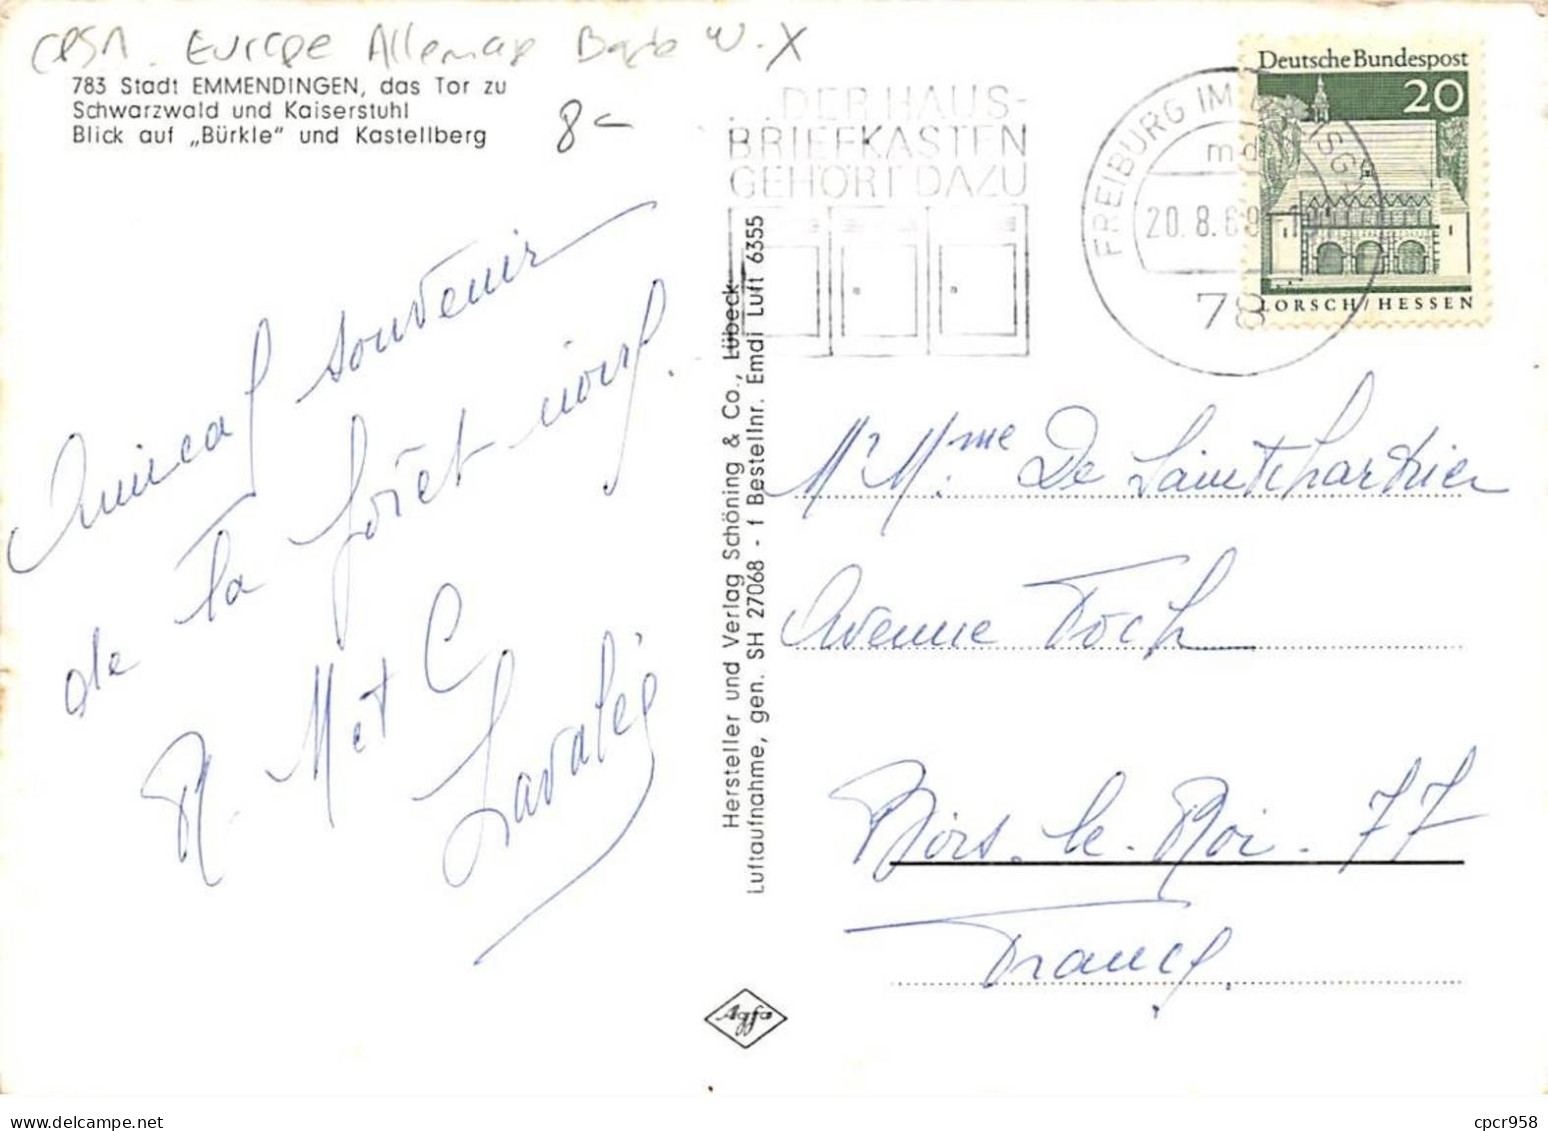 CPSM. Europe Allemag Bade W-X
783 Stadt EMMENDINGEN, das Tor zu
Schwarzwald und Kaiserstuhl
Blick auf „Bürkle" und Kastellberg
8
...DER HAUS-
BRIEFKASTEN
GEHÖRT DAZU
FREIBURG IM BREISGAU
md
20.8.69
78
Deutsche Bundespost
20
LORSCH/HESSEN
Amical souvenir
de la forêt noire.
R. M et C
Hersteller und Verlag Schöning & Co., Lübeck
Luftaufnahme, gen. SH 27068 - f Bestellnr. Emdi Luft 6355
Mr Mme De Saint
Avenue Foch
le Roi. 77
France
Agfa
Image non contractuelle
cpcr958